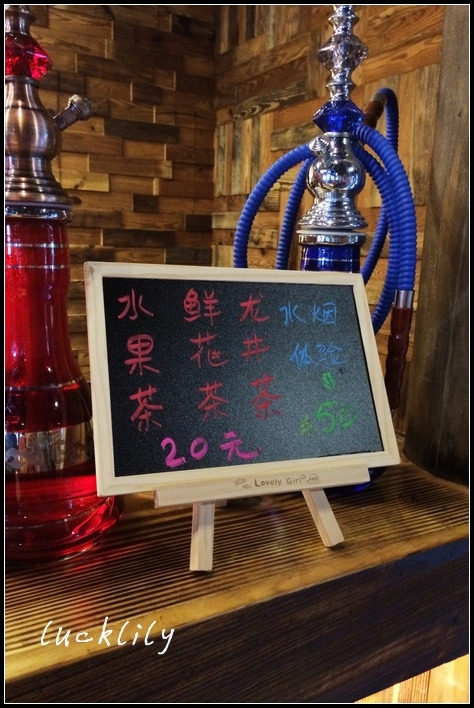 水果茶
鲜花茶
龙井茶
20元
水烟
体验
50
Lovely Girl
lucklily